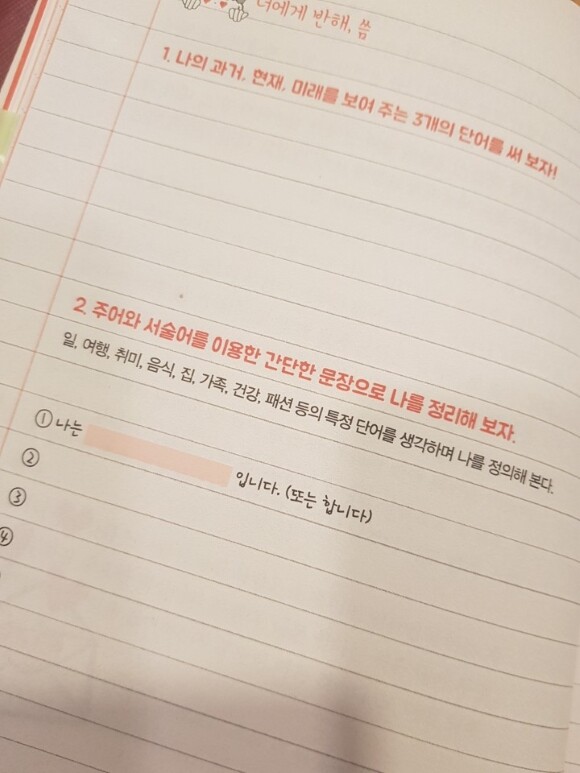 너에게 반해, 씀
1. 나의 과거, 현재, 미래를 보여 주는 3개의 단어를 써 보자!
2. 주어와 서술어를 이용한 간단한 문장으로 나를 정리해 보자.
일, 여행, 취미, 음식, 집, 가족, 건강, 패션 등의 특정 단어를 생각하며 나를 정의해 본다.
① 나는 입니다. (또는 합니다)
②
③
④